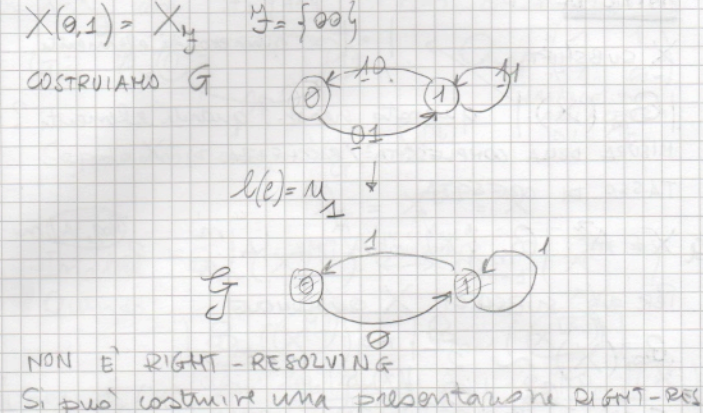 X(0,1) = X_F F = {00}
COSTRUIAMO G
10 11
0 1
01
l(e) = u_1
1 1
G 0 1
0
NON E' RIGHT-RESOLVING
Si può costruire una presentazione RIGHT-RES